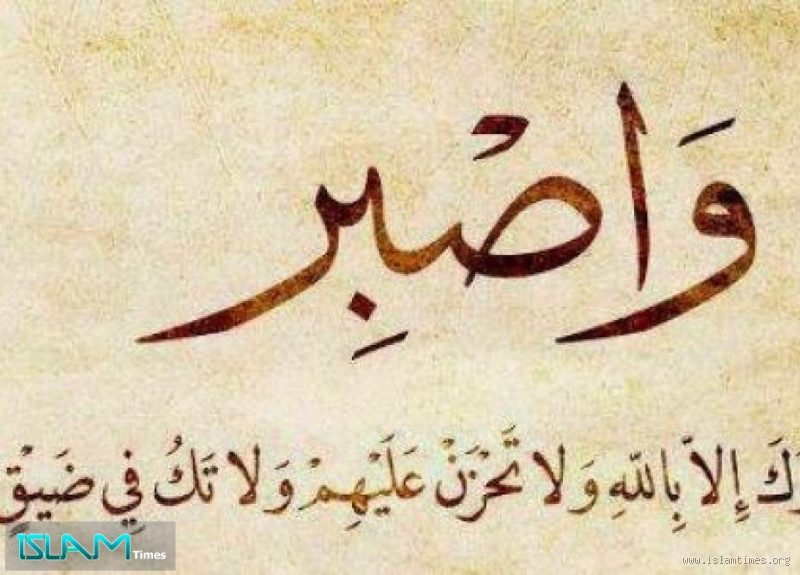 وَاصْبِر
رَكَ إِلاَّ بِاللّهِ وَلاَ تَحْزَنْ عَلَيْهِمْ وَلاَ تَكُ فِي ضَيْقٍ
ISLAM Times
www.islamtimes.org